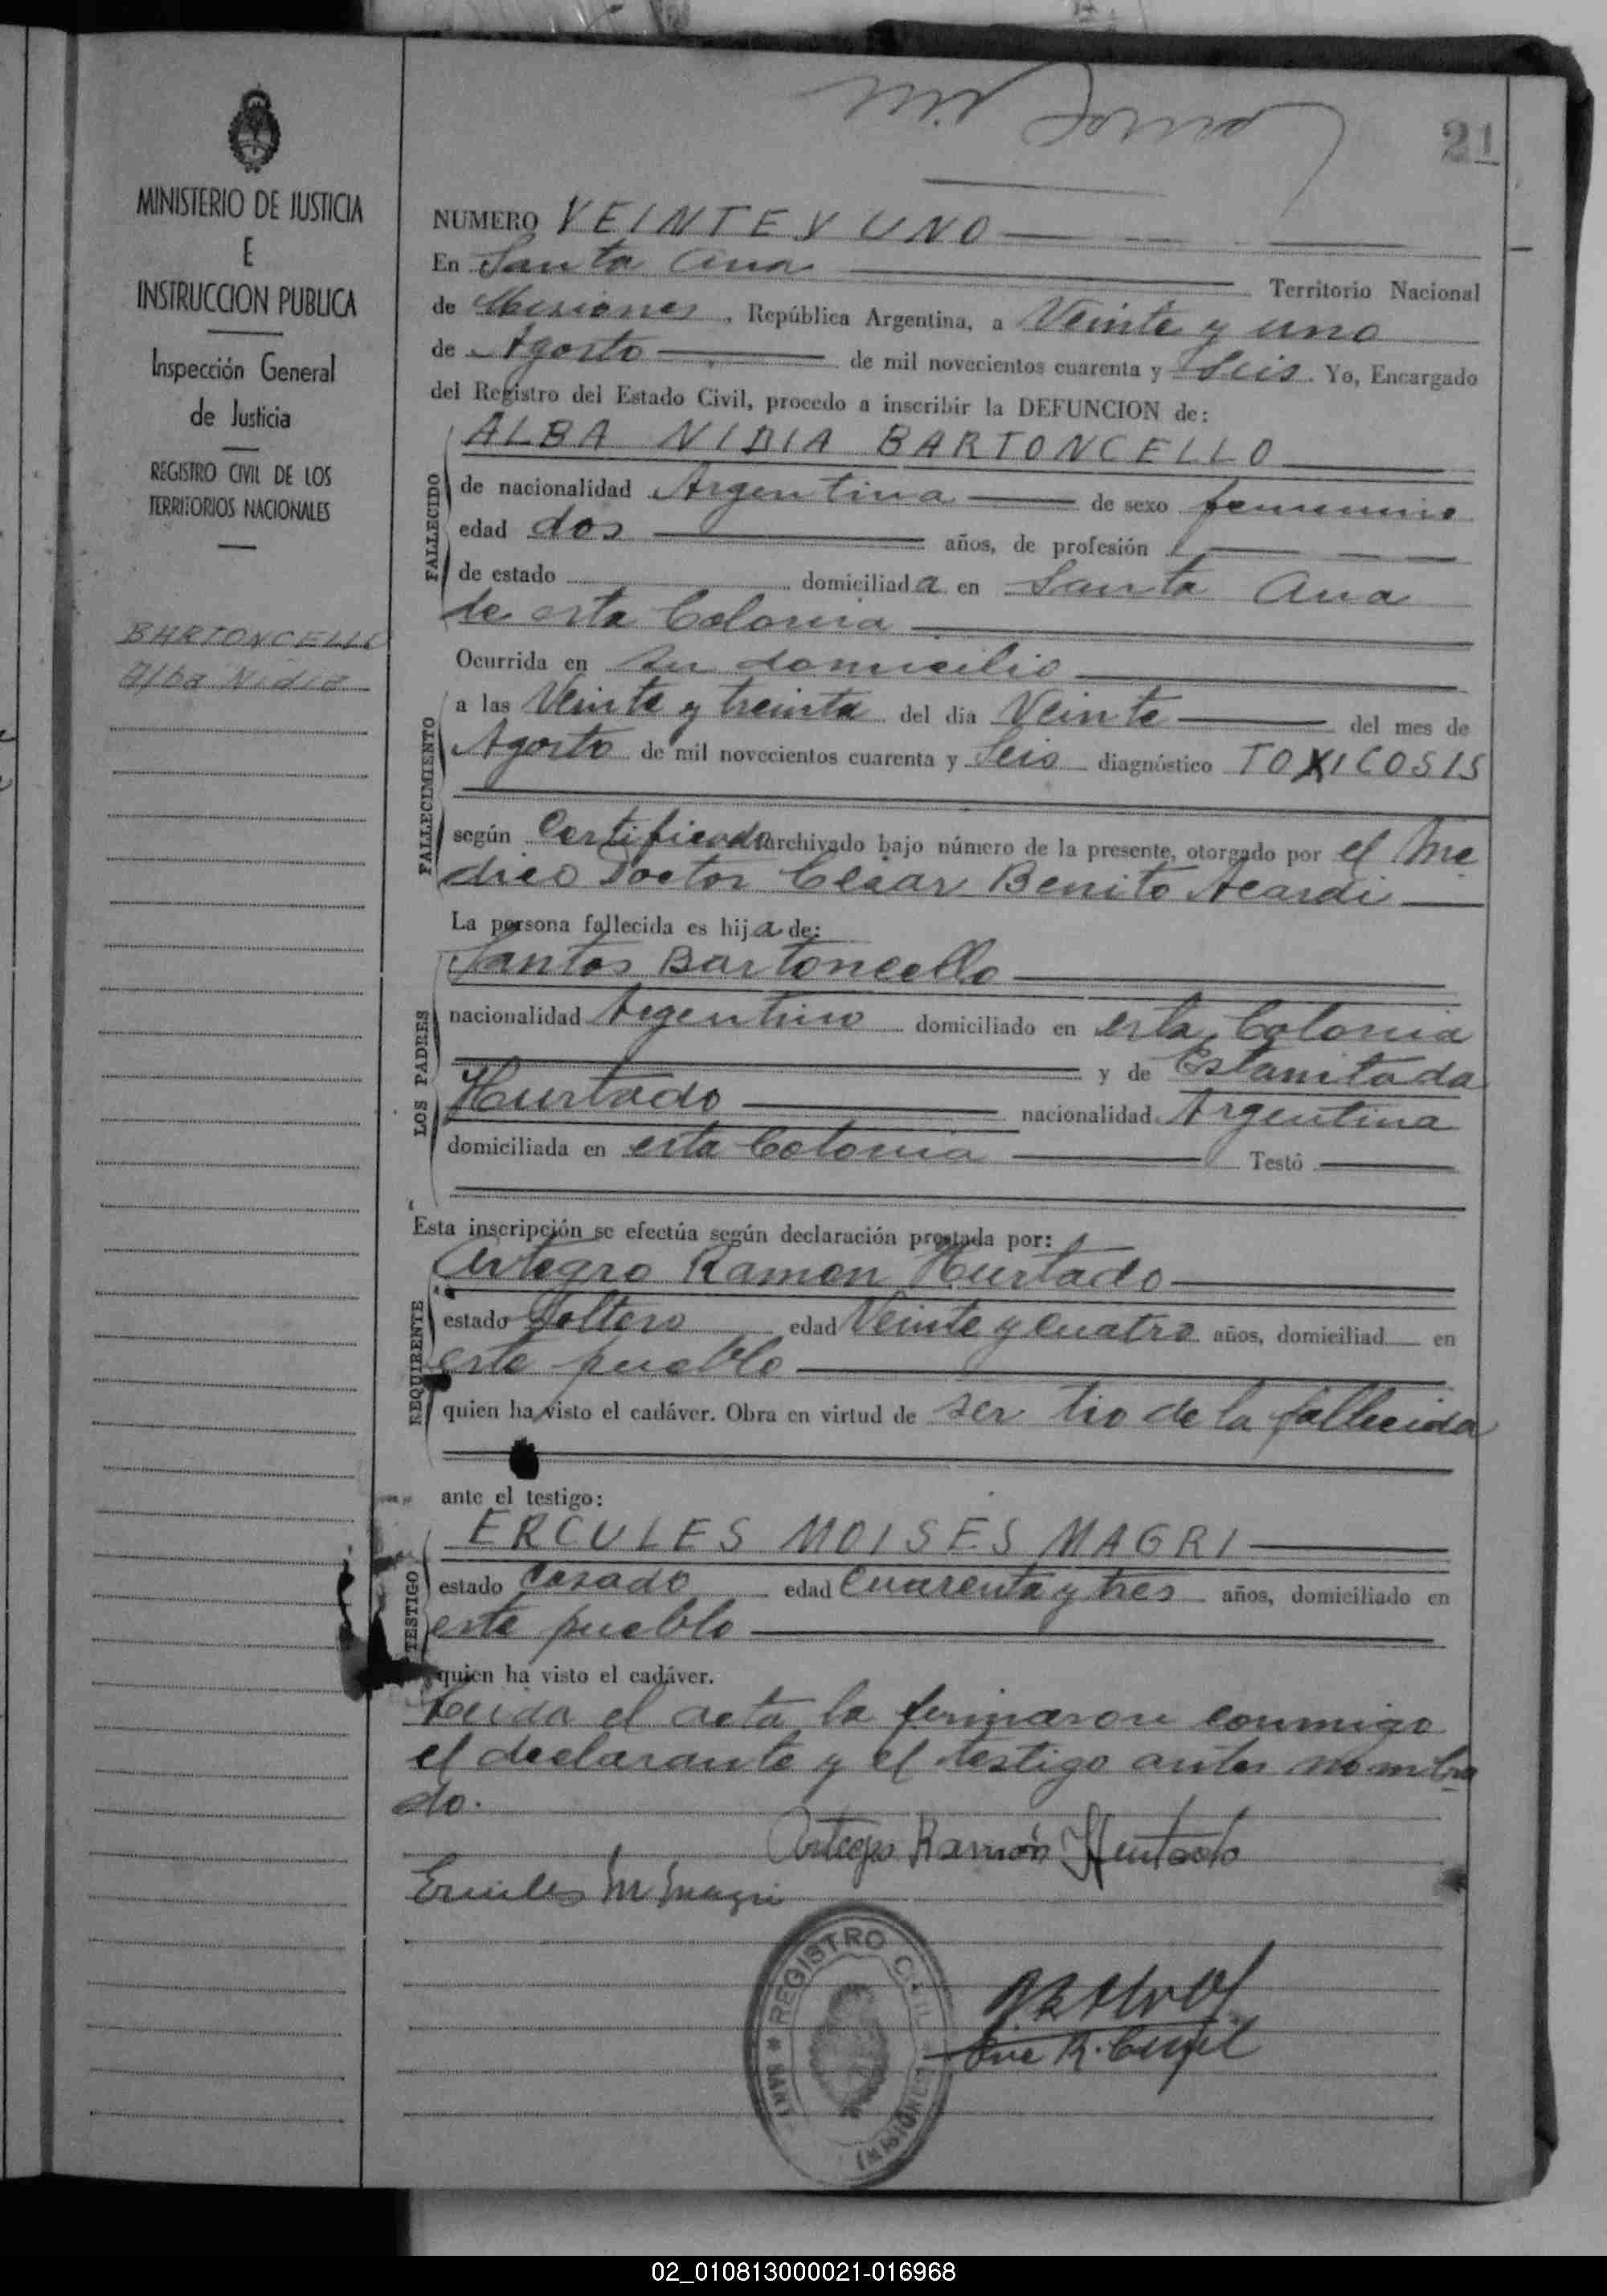 21
MINISTERIO DE JUSTICIA
E
INSTRUCCION PUBLICA
Inspección General
de Justicia
REGISTRO CIVIL DE LOS
TERRITORIOS NACIONALES
BARTONCELLO
Alba Nidia
NUMERO VEINTE Y UNO
En Santa Ana Territorio Nacional
de Misiones, República Argentina, a Veinte y uno
de Agosto de mil novecientos cuarenta y Seis. Yo, Encargado
del Registro del Estado Civil, procedo a inscribir la DEFUNCION de:
FALLECIDO
ALBA NIDIA BARTONCELLO
de nacionalidad Argentina de sexo femenino
edad dos años, de profesión
de estado domiciliada en Santa Ana
de esta Colonia
FALLECIMIENTO
Ocurrida en su domicilio
a las Veinte y treinta del día Veinte del mes de
Agosto de mil novecientos cuarenta y Seis diagnóstico TOXICOSIS
según Certificado archivado bajo número de la presente, otorgado por el Me
dico Doctor Cesar Benito Acardi
La persona fallecida es hija de:
LOS PADRES
Santos Bartoncello
nacionalidad Argentino domiciliado en esta Colonia
y de Estanilada
Hurtado nacionalidad Argentina
domiciliada en esta Colonia Testó
Esta inscripción se efectúa según declaración prestada por:
REQUIRENTE
Artegro Ramon Hurtado
estado Soltero edad Veinte y cuatro años, domiciliad en
este pueblo
quien ha visto el cadáver. Obra en virtud de ser tio de la fallecida
ante el testigo:
TESTIGO
ERCULES MOISES MAGRI
estado Casado edad Cuarenta y tres años, domiciliado en
este pueblo
quien ha visto el cadáver.
Leida el acta la firmaron conmigo
el declarante y el testigo antes nombra
do.
Ramón Hurtado
Ercules M Magri
REGISTRO CIVIL
(MISIONES)
02_010813000021-016968